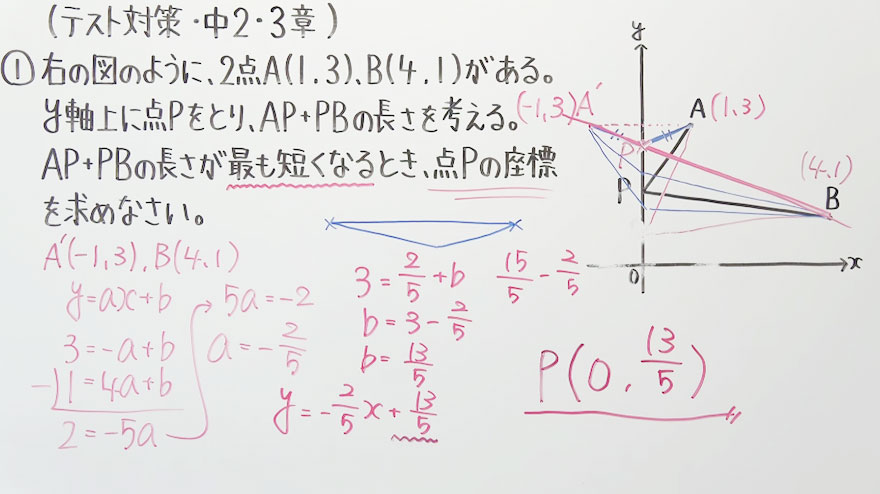 (テスト対策・中2・3章)
①右の図のように、2点A(1.3)、B(4.1)がある。
y軸上に点Pをとり、AP+PBの長さを考える。
AP+PBの長さが最も短くなるとき、点Pの座標
を求めなさい。
A'(-1,3), B(4,1)
y=ax+b
3=-a+b
-)1=4a+b
2=-5a
5a=-2
a=-2/5
3=2/5+b
b=3-2/5
b=13/5
y=-2/5x+13/5
15/5-2/5
P(0,13/5)
y
(-1,3)A'
A(1,3)
P'
P
(4.1)
B
O
x